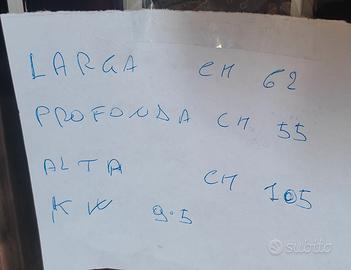 LARGA CM 62
PROFONDA CM 55
ALTA CM 105
KW 9.5
subito